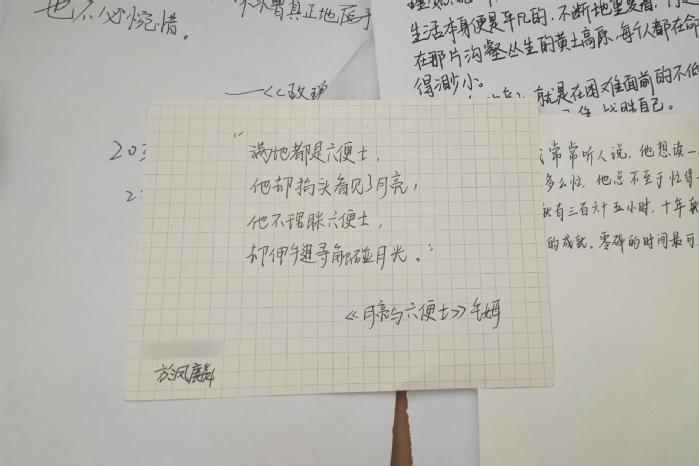 也不必惋惜。
——《玫瑰
生活本身便是平凡的,不断地重复着,
在那片沟壑丛生的黄土高原,每个人都在命
得渺小。
就是在困难面前的不低
战胜自己。
常常听人说,他想读一
多么忙,他总不至于忙得
就有三百六十五小时,十年就
的成就。零碎的时间最可
“满地都是六便士,
他却抬头看见了月亮,
他不谓眯六便士,
却伸手追寻触碰月光。”
《月亮与六便士》毛姆
於凤麟